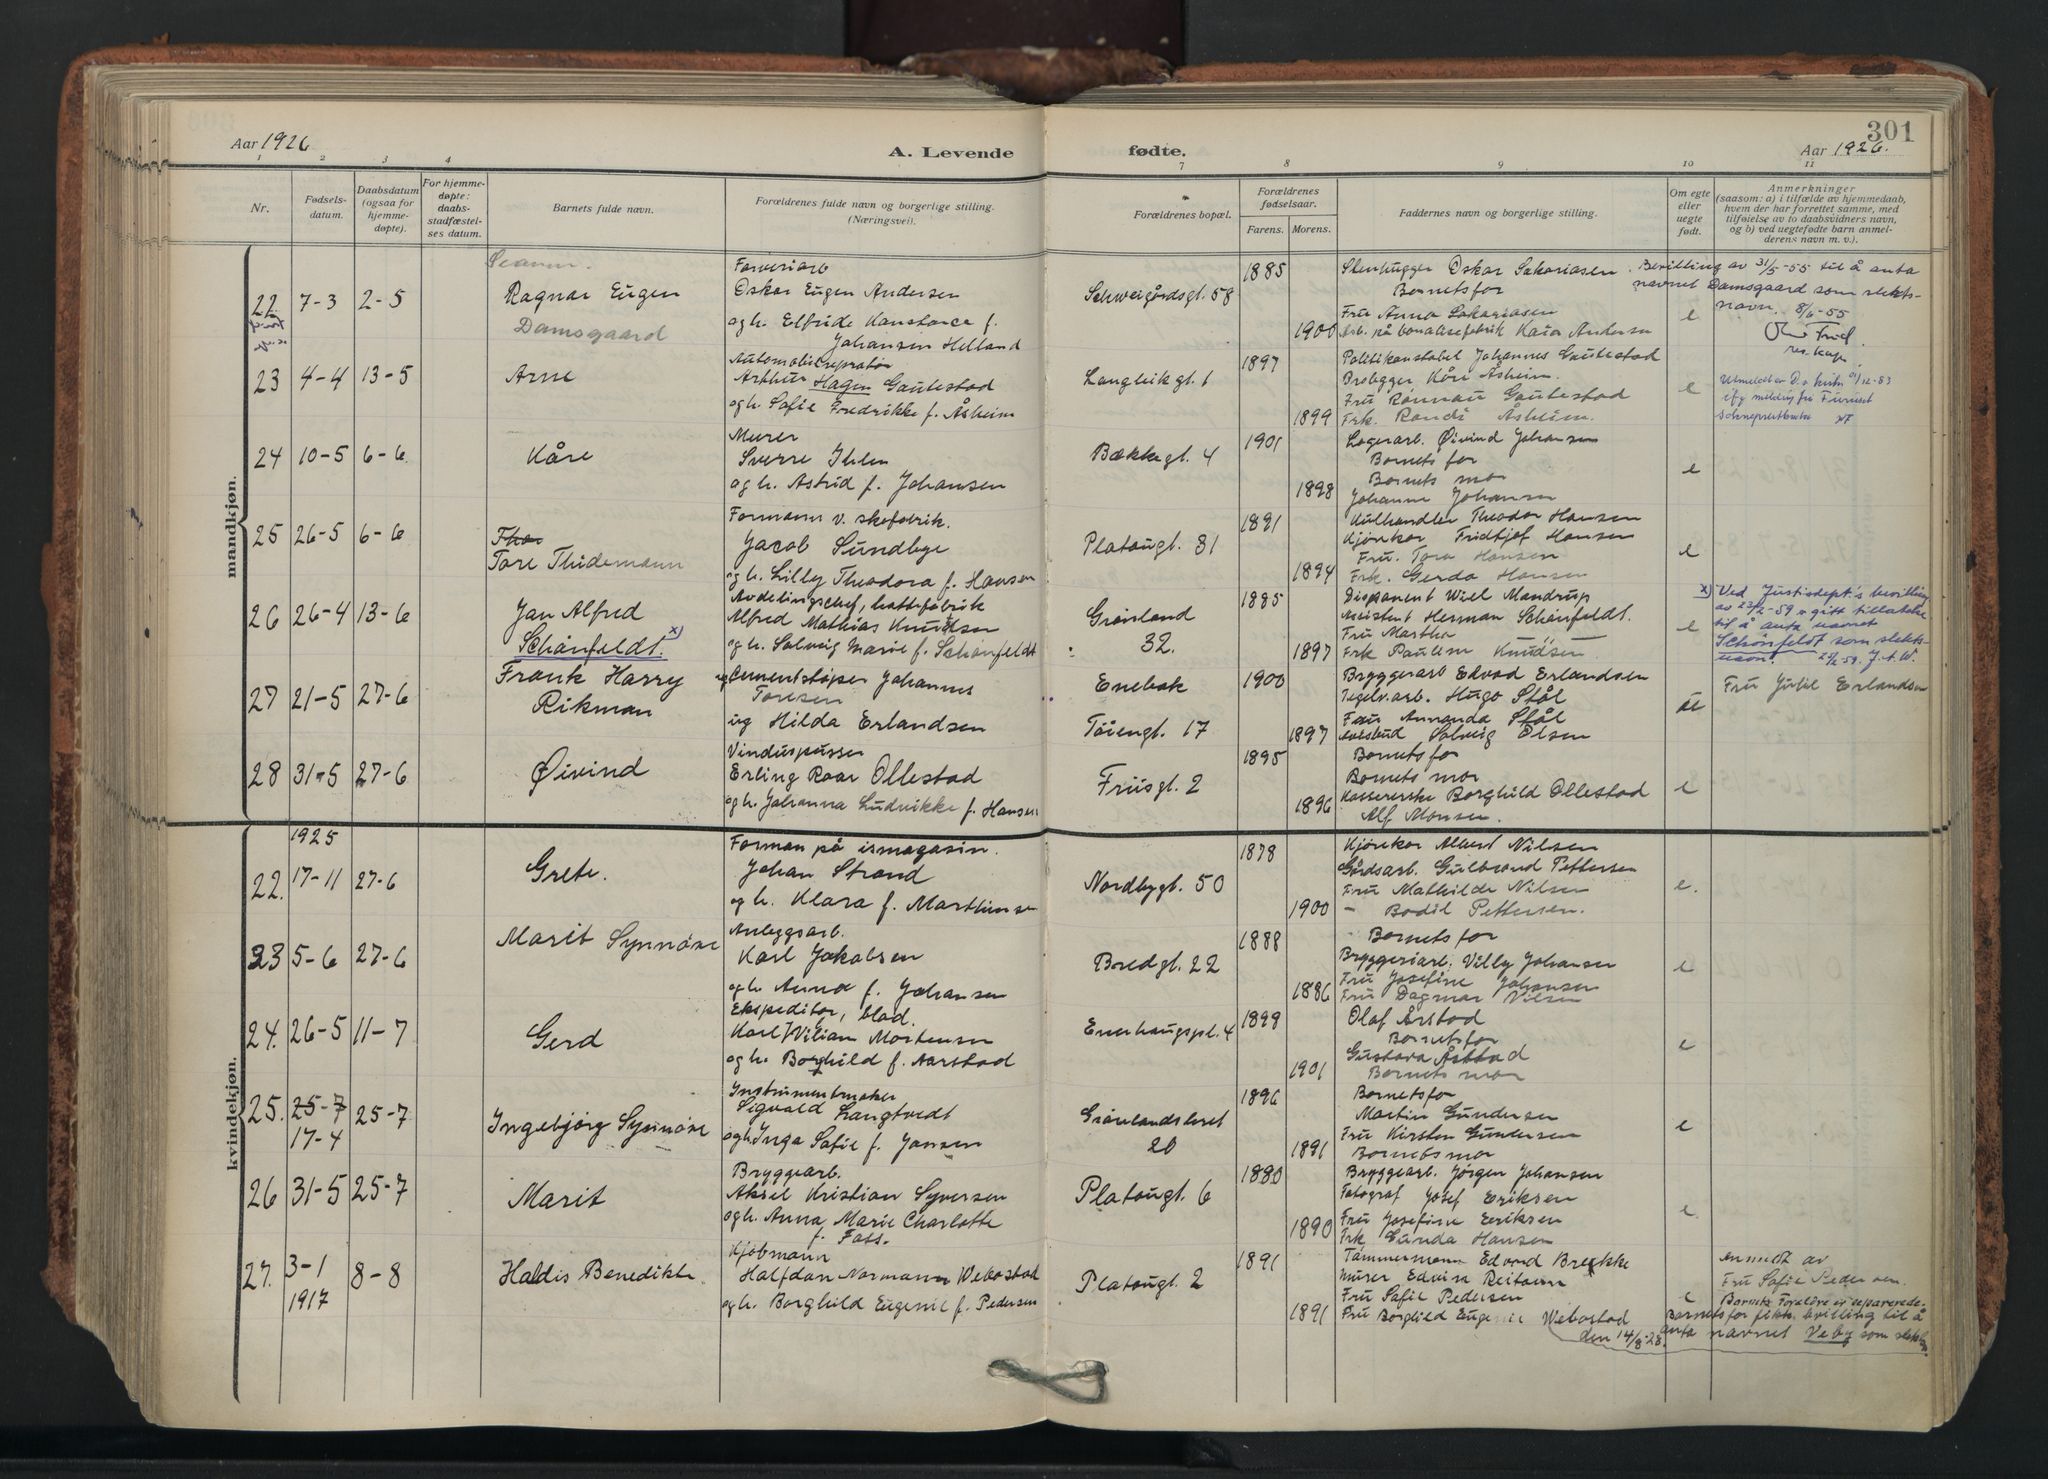 301
Aar 1926
A. Levende fødte.
Aar 1926.
1 2 3 4 7 8 9 10 11
Nr.
Fødsels-
datum.
Daabsdatum
(ogsaa for
hjemme-
døpte).
For hjemme-
døpte:
daabs-
stadfæstel-
ses datum.
Barnets fulde navn.
Forældrenes fulde navn og borgerlige stilling.
(Næringsvei).
Forældrenes bopæl.
Forældrenes
fødselsaar.
Farens. Morens.
Faddernes navn og borgerlige stilling.
Om egte
eller
uegte
født.
Anmerkninger
(saasom: a) i tilfælde av hjemmedaab,
hvem der har forrettet samme, med
tilføielse av to daabsvidners navn,
og b) ved uegtefødte barn anmel-
derens navn m. v.).
mandkjøn.
22 7-3 2-5
Ragnar Eugen
Damsgaard
Farveriarb
Oskar Eugen Andersen
og h. Elfride Konstance f.
Johansen Helland
Schweigårdsgt. 58
1885
1900
Stenhugger Oskar Sakariasen
Barnets far
Fru Anna Sakariasen
Kaia Andersen
e
Bevilling av 31/5-55 til å anta
navnet Damsgaard som slekts-
navn. 8/6-55
res.kap.
23 4-4 13-5
Arne
Arthur Hagen Gautestad
og h. Sofie Fredrikke f. Åsheim
Langleikgt. 1
1897
1899
Politikonstabel Johannes Gautestad
Brolegger Kåre Åsheim.
Fru Rannau Gautestad
Frk. Randi Åsheim.
e
24 10-5 6-6
Kåre
Murer
Sverre Ihlen
og h. Astrid f. Johansen
Bækkegt. 4
1901
1898
Lagerarb. Øivind Johansen
Barnets far
Barnets mor
Johanne Johansen
e
25 26-5 6-6
Thor
Tore Thidemann
Formann v. skofabrik.
Jacob Sundbye
og h. Lilly Theodora f. Hansen
Platougt. 31
1891
1894
Kulhandler Theodor Hansen
Kjørekar Fridtjof Hansen
Fru. Tora Hansen
Frk. Gerda Hansen
e
26 26-4 13-6
Jan Alfred
Schønfeldt. x)
Avdelingschef, hattefabrik
Alfred Mathias Knudsen
og h. Solveig Marie f. Schønfeldt
Grønland
32.
1885
1897
Disponent Wiel Mandrup
Assistent Herman Schønfeldt.
Fru Martha
Frk Pauline Knudsen
e
x) Ved Justisdept's bevilling
av 23/2-59 er gitt tillatelse
til å anta navnet
Schønfeldt som slekts-
navn.
27 21-5 27-6
Frank Harry
Rikman
Cementstøper Johannes
Toresen
ug Hilda Erlandsen
Enebak
Tøiengt. 17
1900
1897
Bryggeriarb Edvard Erlandsen
Teglv.arb. Hugo Stål
Fru Amanda Stål
Solveig Olsen
ue
Fru Julie Erlandsen
28 31-5 27-6
Øivind
Vinduspusser
Erling Roar Ollestad
og h. Johanna Ludvikke f. Hansen
Friisgt. 2
1895
1896
Barnets far
Barnets mor
Kassererske Borghild Ollestad
Alf Monsen.
e
kvindekjøn.
1925
22. 17-11 27-6
Grete.
Forman på ismagasin.
Johan Strand
og h. Klara f. Marthinsen
Nordbygt. 50
1878
1900
Kjørekar Albert Nilsen
Gårdsarb. Gulbrand Pettersen
Fru Mathilde Nilsen
- Bodil Pettersen.
e.
23 5-6 27-6
Marit Synnøve
Anleggsarb.
Karl Jakobsen
og h. Anna f. Johansen
Bredgt. 22
1888
1886
Barnets far
Bryggeriarb. Villy Johansen
Fru Josefine Johansen
Fru Dagmar Nilsen
e
24. 26-5 11-7
Gerd
Ekspeditør, blad.
Karl Viliam Mortensen
og h. Borghild f. Aarstad
Enerhaugspl. 4
1899
1901
Olaf Årstad
Barnets far
Gustava Årstad
Barnets mor
e
25. 25-7 25-7
17-4
Ingebjørg Synnøve
Instrumentmaker
Sigvald Langtvedt
og h. Inga Sofie f. Jansen
Grønlandsleret
20
1896
1891
Barnets far
Martin Gundersen
Fru Kirsten Gundersen
Barnets mor
e
26 31-5 25-7
Marit
Bryggearb.
Aksel Kristian Syversen
og h. Anna Marie Charlotte
f. Foss.
Platougt. 6
1880
1890
Bryggearb. Jørgen Johansen
Fotograf Josef Eriksen
Fru Josefine Eriksen
Frk Gunda Hansen
e
27. 3-1 8-8
1917
Haldis Benedikte.
Kjøbmann
Halfdan Normann Webostad
og h. Borghild Eugenie f. Pedersen
Platougt. 2
1891
1891
Tømmermann Edvard Brekke
Murer Edvin Reitaun
Fru Sofie Pedersen
Fru Borghild Eugenie Webostad
e
anmeldt av
Fru Sofie Pedersen.
Barnets Foreldre er separerede.
Barnets far fikk bevilling til å
den 14/8-28. anta navnet Veby som slektsn.